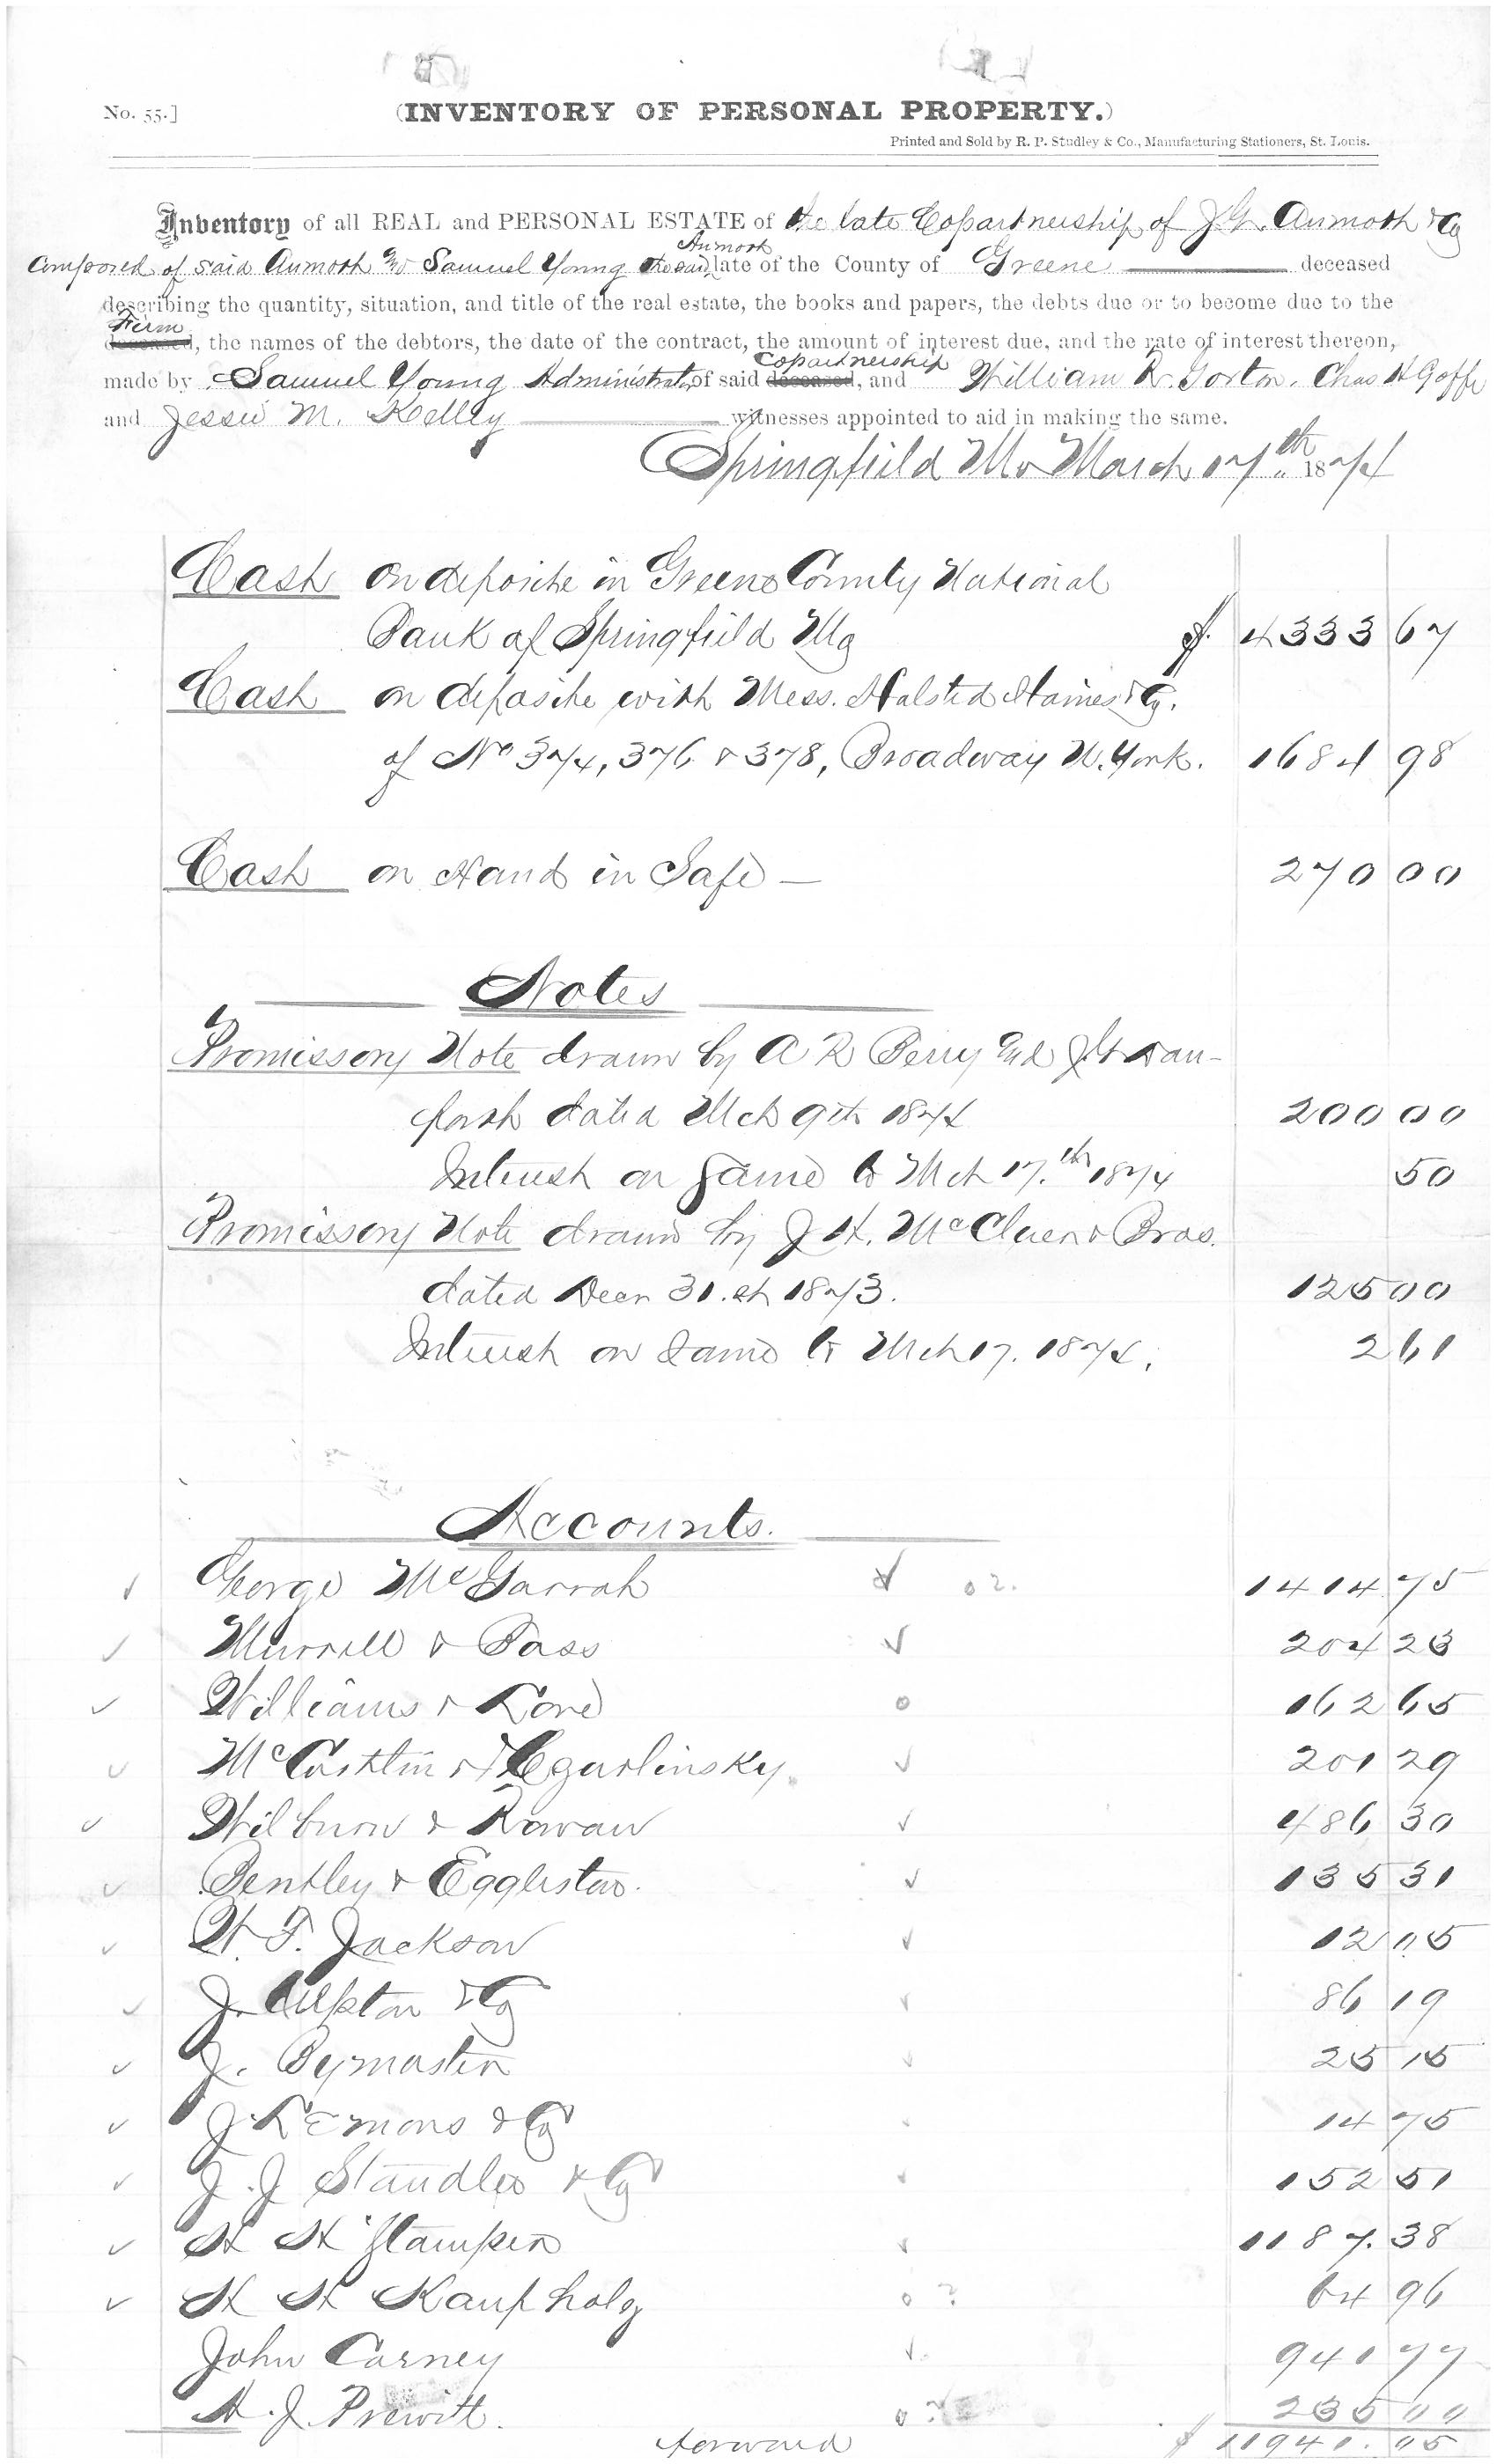 No. 55.]
(INVENTORY OF PERSONAL PROPERTY.)
Printed and Sold by R. P. Studley & Co., Manufacturing Stationers, St. Louis.
Inventory of all REAL and PERSONAL ESTATE of the late Copartnership of J. G. Aumoth & Co
Aumoth
Composed of said Aumoth and Samuel Young the said late of the County of Greene deceased
describing the quantity, situation, and title of the real estate, the books and papers, the debts due or to become due to the
Firm
deceased, the names of the debtors, the date of the contract, the amount of interest due, and the rate of interest thereon,
Copartnership
made by Samuel Young Administrator of said deceased, and William R. Gorton, Chas H Goffe
and Jessie M. Kelley witnesses appointed to aid in making the same.
Springfield Mo March 17th 1874
Cash on deposite in Greene County National
Bank of Springfield Mo $ 4333 67
Cash on deposite with Mess. Halsted Haines & Co.
of No 374, 376 & 378, Broadway N. York. 1684 98
Cash on Hand in Safe — 270 00
Notes
Promissory Note drawn by A R Berry and J. Dan-
forth dated Mch 9th 1874 200 00
Interest on same to Mch 17.th 1874 50
Promissory Note drawn by J H. McCluer & Bros.
dated Decr 31.st 1873. 125 00
Interest on same to Mch 17. 1874. 2 61
Accounts.
George McGarrah 0 ?. 1414 75
Murrell & Bass 204 23
Williams & Lord 0 162 65
McCastlin & Czarlinsky 201 29
Wilburn & Rowan 486 30
Bentley & Eggleston. 135 31
W. F. Jackson 12 05
J. Upton & Co 86 19
J. Bymaster 25 15
J. Lemons & Co 14 75
J. J Standlee & Co 152 51
H H Stamper 1187. 38
H H Kaufholz 0 ? 64 96
John Carney 941 77
H. J. Prewitt. 0 ? 235 00
forward $ 11941.05